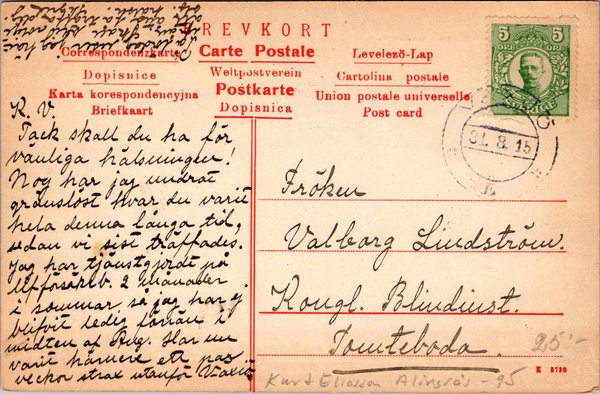 BREVKORT
Correspondenzkarte
Carte Postale
Levelező-Lap
Dopisnice
Weltpostverein
Cartolina postale
Karta korespondencyjna
Postkarte
Union postale universelle
Briefkaart
Dopisnica
Post card
5 5
ÖRE ÖRE
SVERIGE
31. 8. 15
K. V.
Tack skall du ha för
vänliga hälsningen!
Nog har jag undrat
gränslöst hvar du varit
hela denna långa tid,
sedan vi sist träffades.
Jag har tjänstgjort på
2 månader
i sommar, så jag har ej
blifvit ledig förrän i
midten af Aug. Har nu
varit härnere ett par
veckor strax utanför Växiö
Fröken
Valborg Lindström.
Kongl. Blindinst.
Tomteboda.
25:-
K 3720
Kurt Eliasson Alingsås - 95